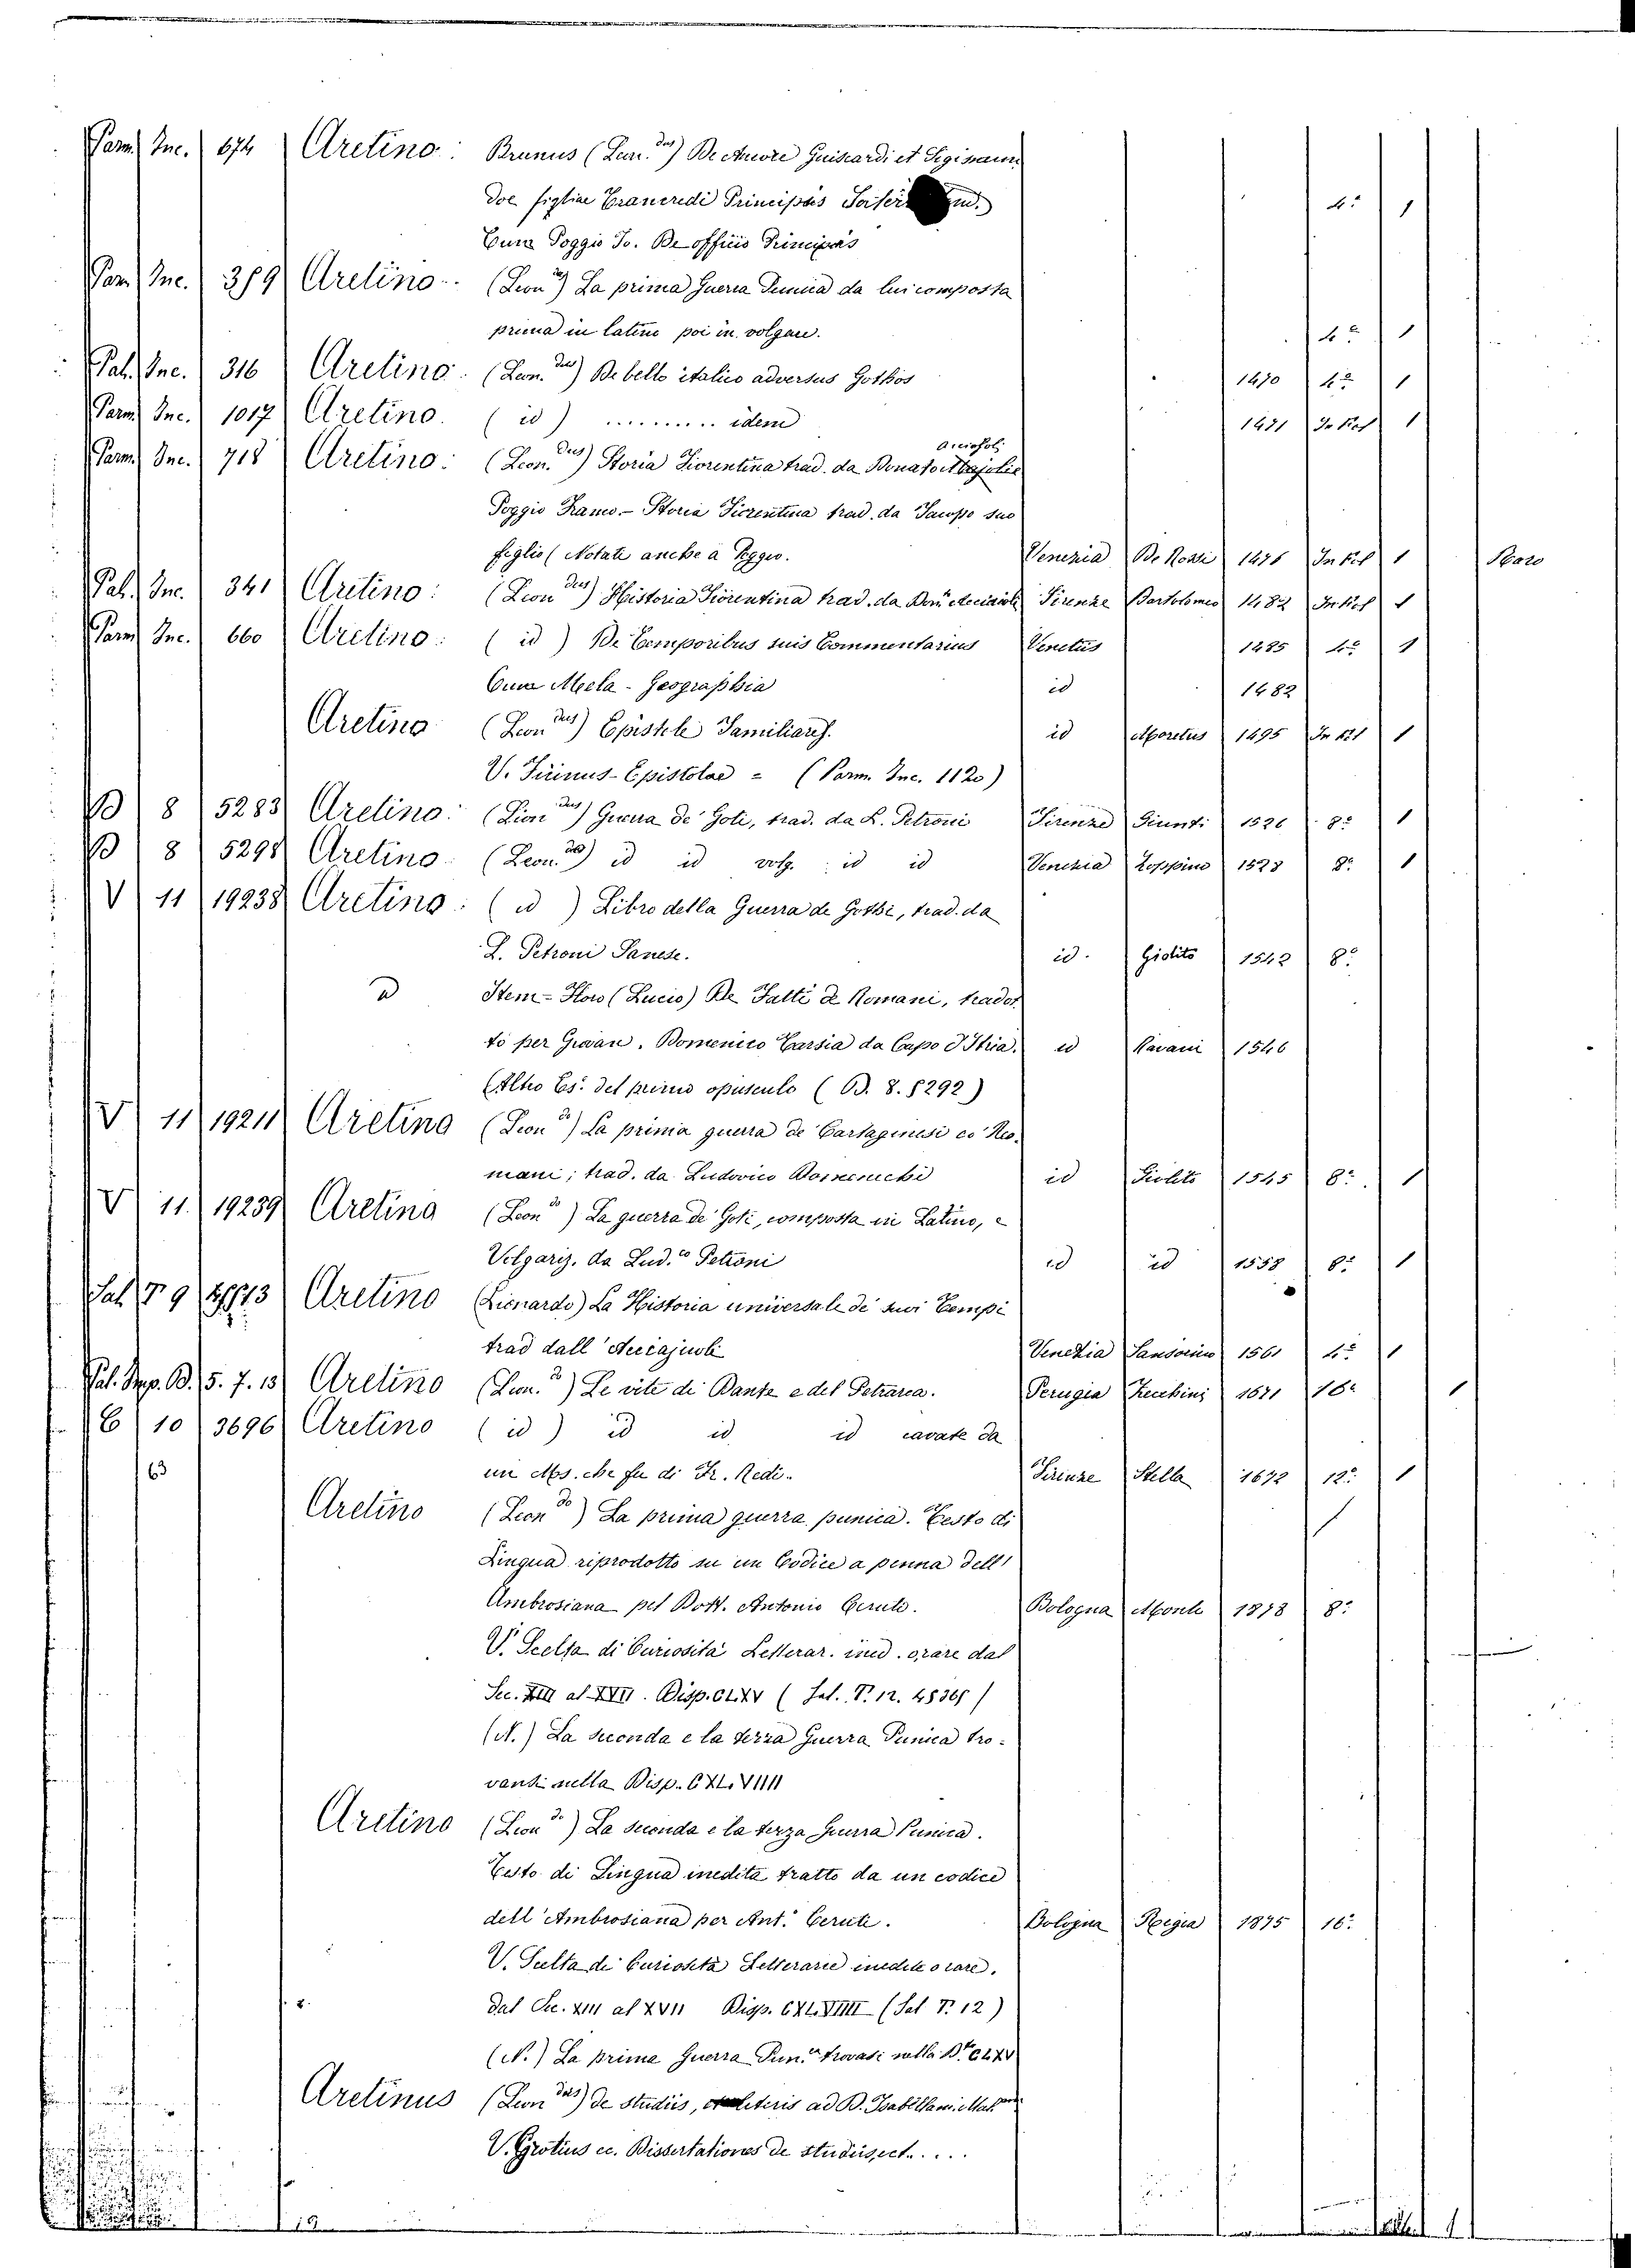 Parm Inc. 674 Aretino: Brunus (Leon.dus) De Amore Guiscardi et Sigismun
doe figliae Tancredi Principis
Cum Poggio Jo. De officio Principis 4.º 1
Parm Inc. 389 Aretino. (Leon.) La prima Guerra Punica da lui composta
prima in latino poi in volgare. 4.º 1
Pal. Inc. 316 Aretino. (Leon.dus) De bello italico adversus Gothos 1470 4.º 1
Parm Inc. 1017 Aretino. (id) .......... idem 1471 In fol 1
Parm Inc. 718 Aretino: (Leon.dus) Storia Fiorentina trad. da Donato Acciajoli
Poggio Franc. - Storia Fiorentina trad. da Jacopo suo
figlio (Notate anche a Poggio. Venezia De Rossi 1476 In fol 1 Raro
Pal. Inc. 341 Aretino: (Leon dus) Historia Fiorentina trad. da Don Acciaioli Firenze Bartolomeo 1482 In fol 1
Parm Inc. 660 Aretino: (id) De Temporibus suis Commentarius Venetus 1485 4.º 1
Cum Mela - Geographia id 1482
Aretino (Leon dus) Epistole Familiares. id Moretus 1495 In fol 1
V. Epistolae = (Parm. Inc. 1120)
B 8 5283 Aretino: (Lion dus) Guerra de' Goti, trad. da L. Petroni Firenze Giunti 1526 8.º 1
B 8 5298 Aretino. (Leon.do) id id volg. id id Venezia Zoppino 1528 8.º 1
V 11 19238 Aretino: (id) Libro della Guerra de Gothi, trad. da
L. Petroni Sanese. id. Giolito 1542 8.º
D Item - Floro (Lucio) De Fatti de Romani, tradot
to per Giovan. Domenico Tarsia da Capo d'Istria. id Ravani 1546
(Altro Es. del primo opusculo (B. 8. 5292)
V 11 19211 Aretino (Leon do) La prima guerra de Cartaginesi co' Ro-
mani; trad. da Ludovico Domenichi id Giolito 1545 8.º 1
V 11. 19239 Aretino (Leon do) La guerra de' Goti, composta in Latino, e
Volgariz. da Lud.co Petroni id id 1558 8.º 1
Sal T 9 Aretino (Lionardo) La Historia universale de' suoi Tempi
trad dall'Acciajuoli Venezia Sansovino 1561 4.º 1
Pal. Imp. B. 5. 7. 13 Aretino (Leon.do) Le vite di Dante e del Petrarca. Perugia Zecchini 1671 16.º 1
E 10 3696 Aretino (id) id id id cavate da
63 un Ms. che fu di Fr. Redi. Firenze Stella 1672 12.º 1
Aretino (Leon do) La prima guerra punica. Testo di
Lingua riprodotto su un Codice a penna dell'
Ambrosiana pel Dott. Antonio Ceruti. Bologna Monti 1878 8.º
V. Scelta di Curiosità Letterar. ined. o rare dal
Sec. XIII al XVII. Disp. CLXV (Sal. T. 12. 48365)
(N.) La seconda e la terza Guerra Punica tro-
vansi nella Disp. CXLVIIII
Aretino (Leon do) La seconda e la terza Guerra Punica.
Testo di Lingua inedita tratto da un codice
dell'Ambrosiana per Ant.º Ceruti. Bologna Regia 1875 16.º
V. Scelta di Curiosità Letterarie inedite o rare.
dal Sec. XIII al XVII Disp. CXLVIIII (Sal T. 12)
(N.) La prima Guerra Pun.ca trovasi nella D.a CLXV
Aretinus (Leon dus) de studiis, et literis ad B. Isabellam
V. Grotius ec. Dissertationes de studiis, ect.....